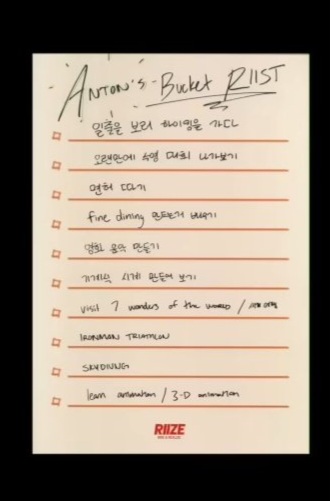 ANTON'S Bucket RIIST
일출을 보러 하이킹을 가다
오랜만에 수영 대회 나가보기
면허 따기
fine dining 만드는거 배우기
영화 음악 만들기
기계식 시계 만들어 보기
visit 7 wonders of the world /
IRONMAN TRIATHLON
SKYDIVING
learn animation / 3-D animation
RIIZE